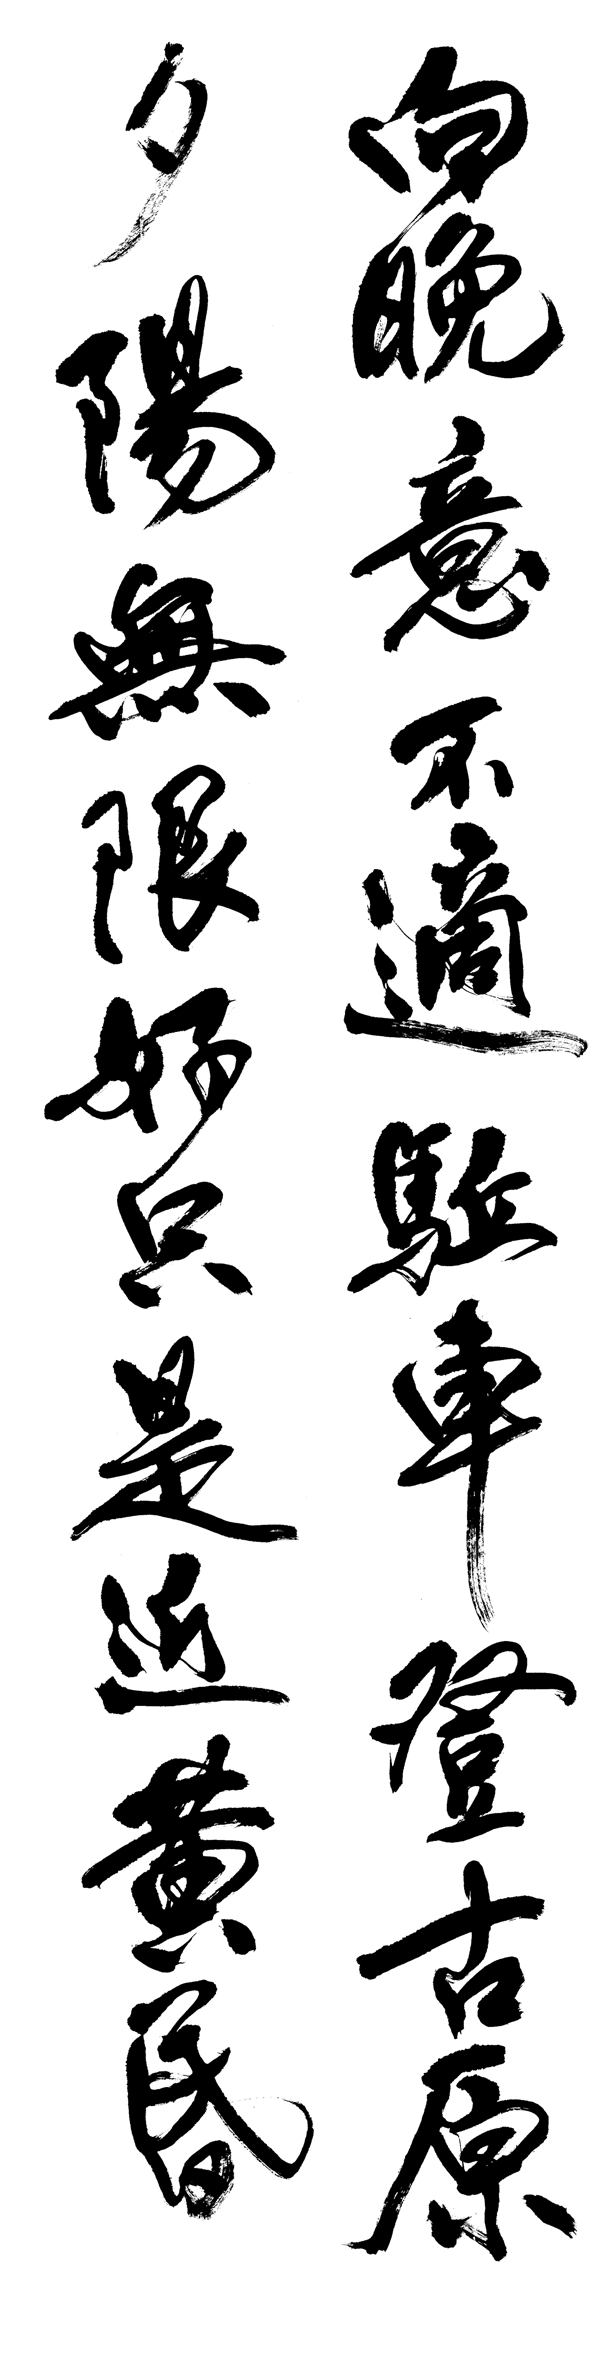 向晚意不適駐車登古原
夕陽無限好只是近黄昏